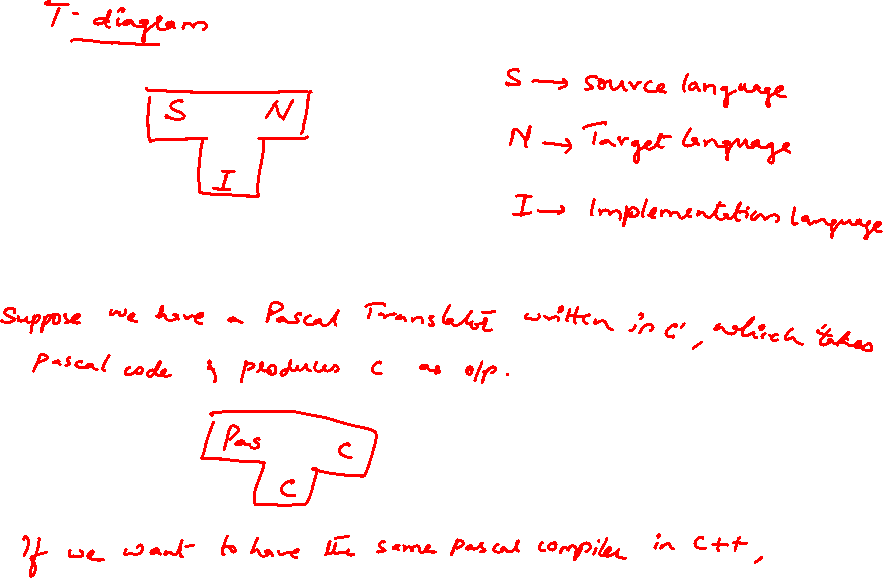 T-diagram
S N
I
S → source language
N → Target language
I → Implementation language
Suppose we have a Pascal Translator written in 'C', which takes
Pascal code & produces C as o/p.
Pas C
C
If we want to have the same pascal compiler in C++,